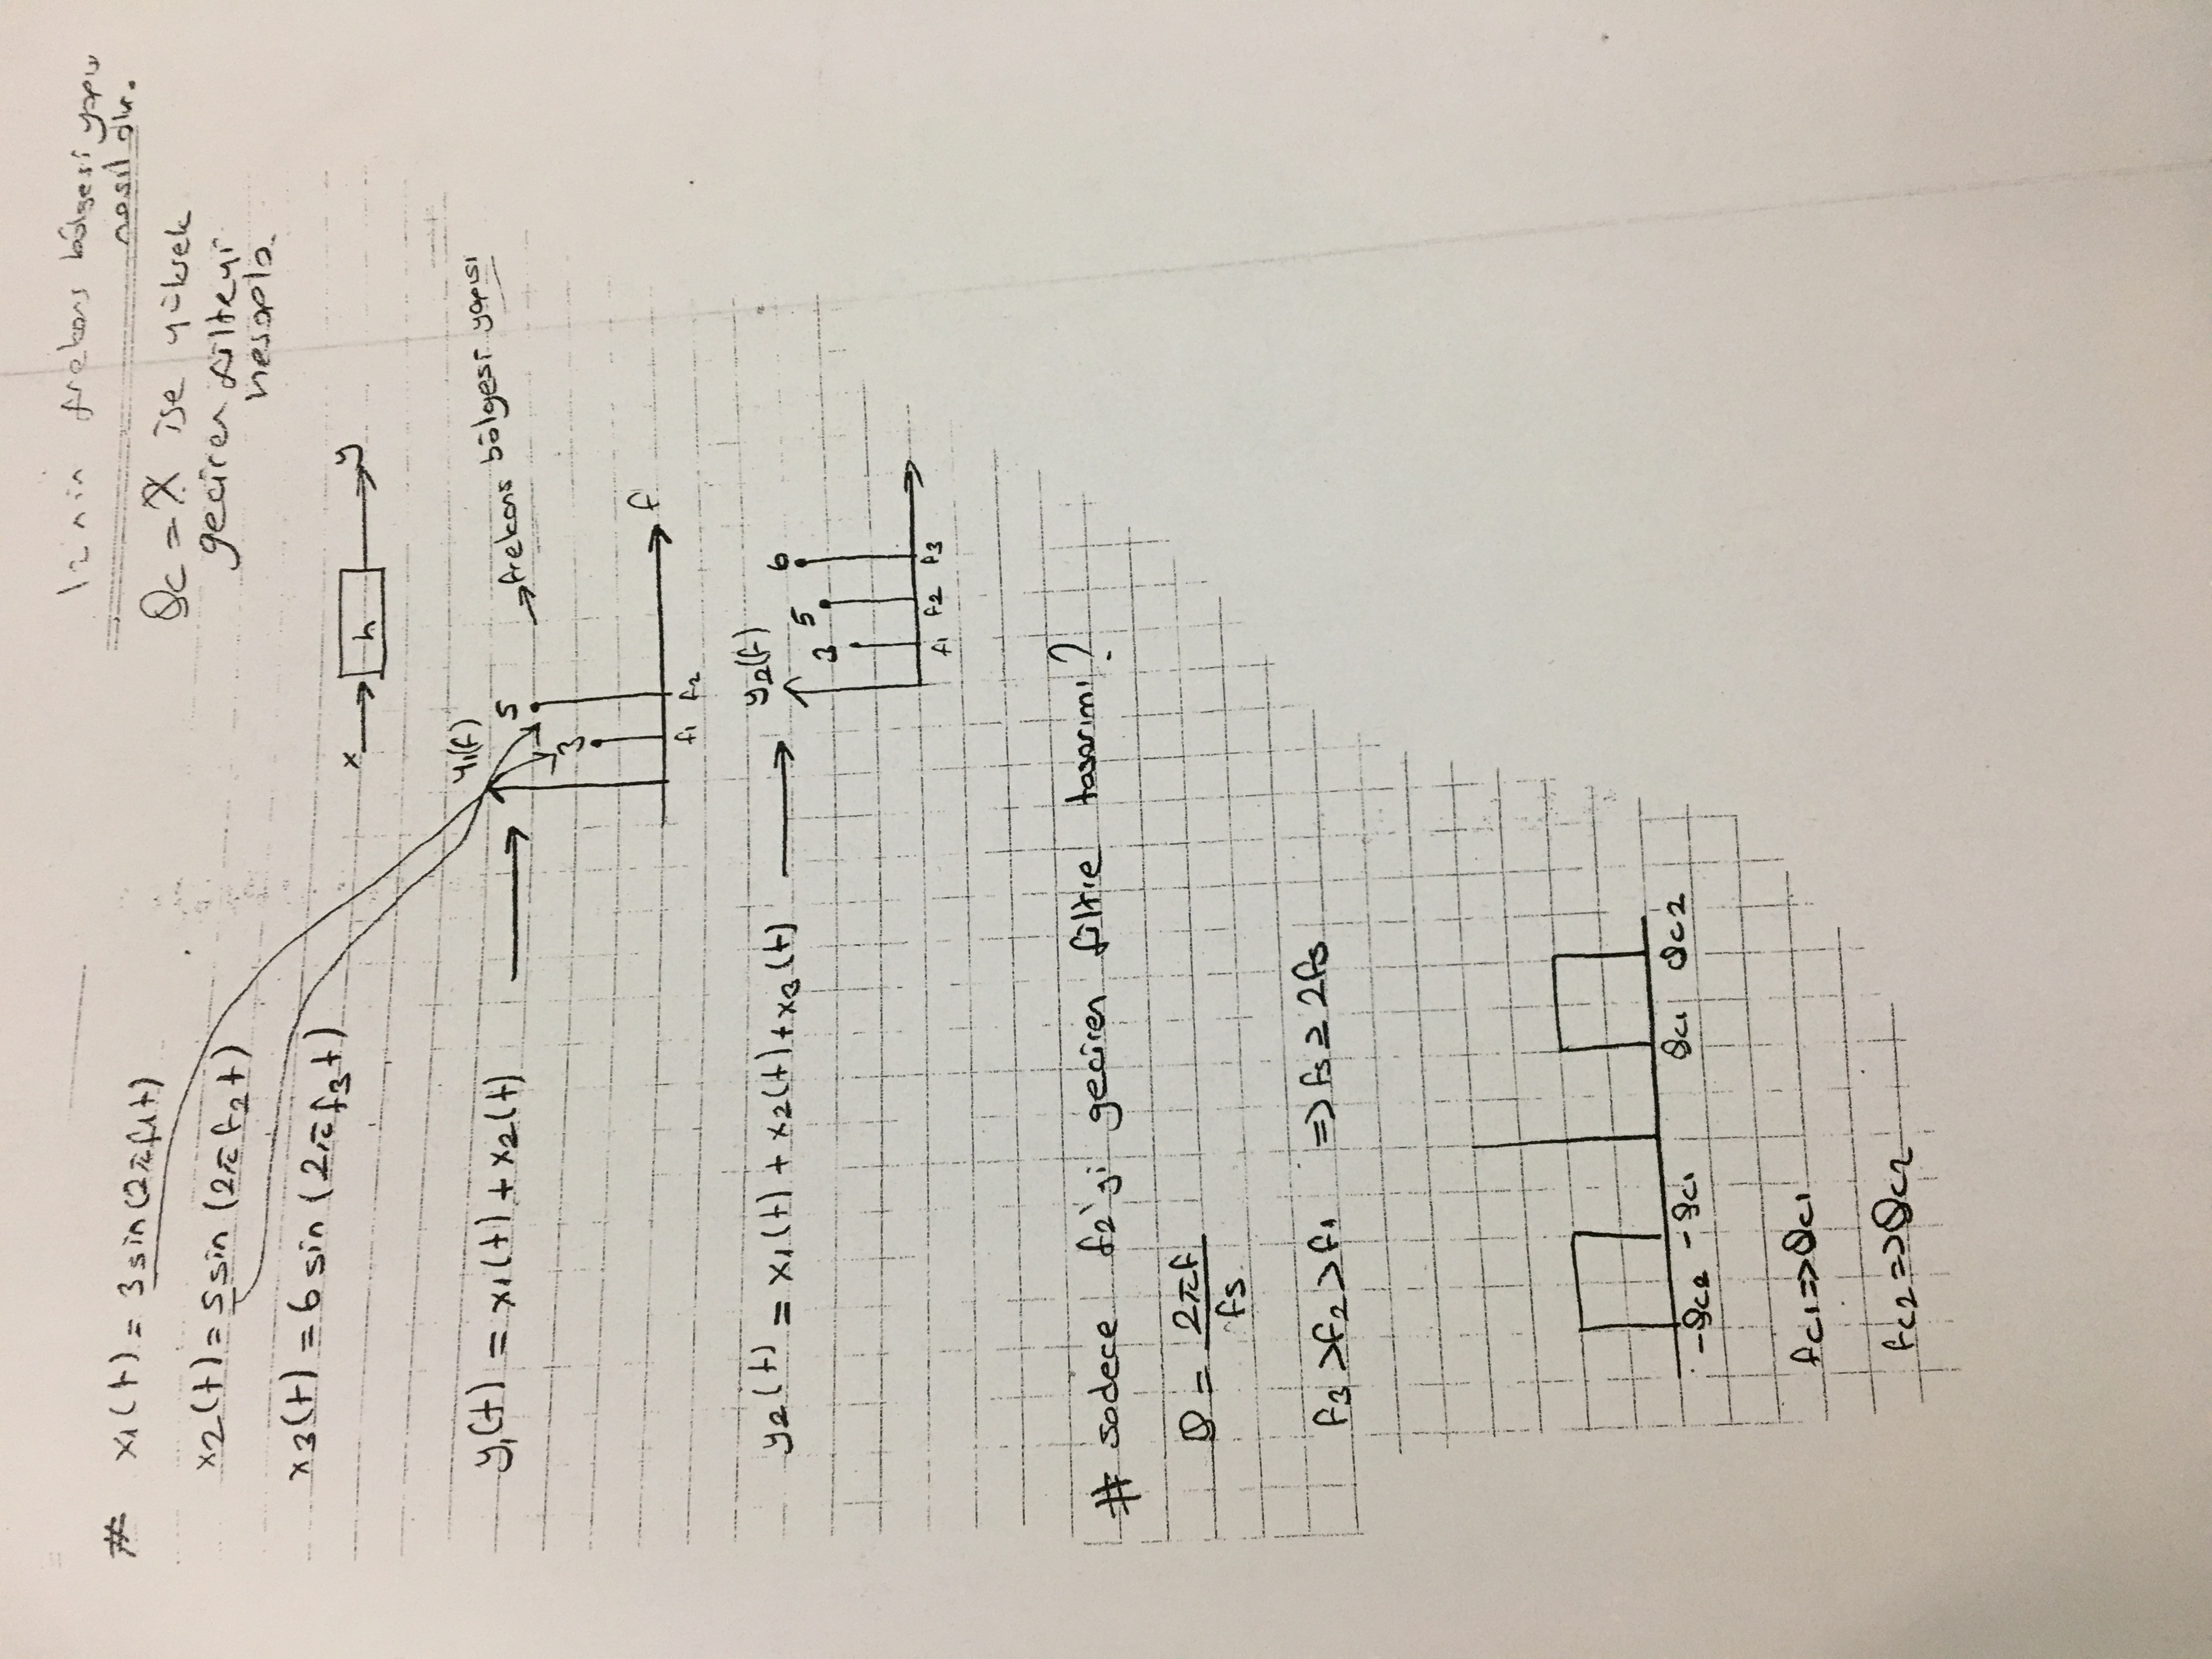 12nin frekans bölgesi yapısı
nasıl olur.
# x1(t) = 3sin(2πf1t)
θc = X ise yüksek
geçiren filteyi
hesapla.
x2(t) = 5sin(2πf2t)
x3(t) = 6sin(2πf3t)
x h y
y1(t) = x1(t) + x2(t)
y1(f)
5
→ frekans bölgesi yapısı
3
f
f1 f2
y2(t) = x1(t) + x2(t) + x3(t)
y2(f)
3 5 6
f1 f2 f3
# sadece f2'yi geçiren filtre tasarımı?
θ = 2πf / fs
f3 > f2 > f1 => fs ≥ 2fs
-θc2 -θc1 θc1 θc2
fc1 => θc1
fc2 => θc2